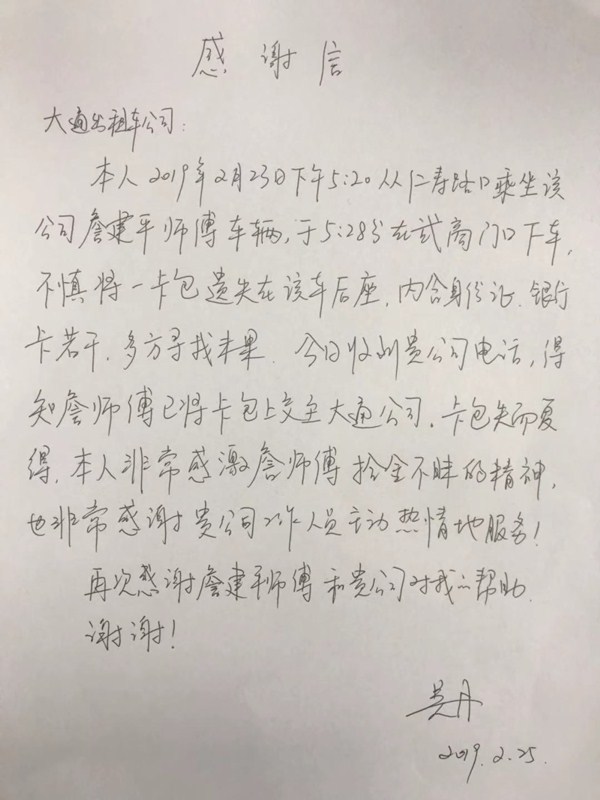 感谢信
大通出租车公司:
本人2019年2月23日下午5:20从仁寿路口乘坐该
公司詹建平师傅车辆,于5:28分在武商门口下车,
不慎将一卡包遗失在该车后座,内含身份证、银行
卡若干,多方寻找未果。今日收到贵公司电话,得
知詹师傅已将卡包上交至大通公司,卡包失而复
得,本人非常感激詹师傅拾金不昧的精神,
也非常感谢贵公司工作人员主动热情地服务!
再次感谢詹建平师傅和贵公司对我的帮助。
谢谢!
吴丹
2019.2.25.